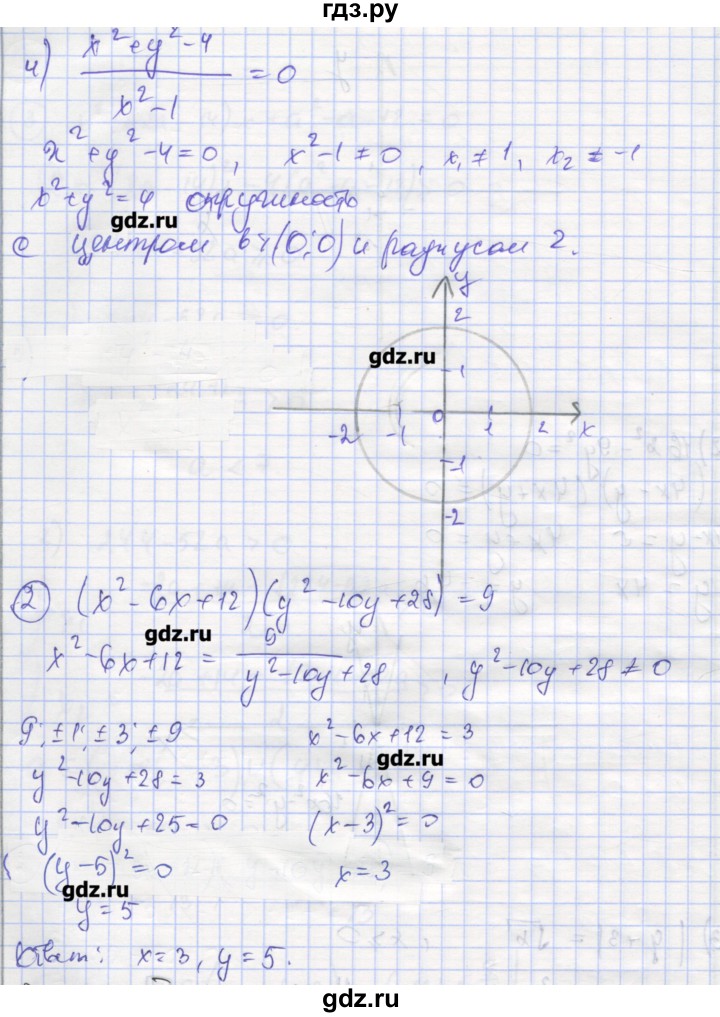 гдз.ру
4) (x² + y² - 4) / (x² - 1) = 0
x² + y² - 4 = 0, x² - 1 ≠ 0, x₁ ≠ 1, x₂ ≠ -1
x² + y² = 4 окружность
gdz.ru
с центром в т (0;0) и радиусом 2.
y
2
gdz.ru
1
-2 -1 0 1 2 x
-1
-2
② (x² - 6x + 12)(y² - 10y + 28) = 9
gdz.ru
x² - 6x + 12 = 9 / (y² - 10y + 28), y² - 10y + 28 ≠ 0
9: ±1; ±3; ±9 x² - 6x + 12 = 3
gdz.ru
y² - 10y + 28 = 3 x² - 6x + 9 = 0
y² - 10y + 25 = 0 (x - 3)² = 0
(y - 5)² = 0 x = 3
gdz.ru
y = 5
Ответ: x = 3, y = 5.
gdz.ru